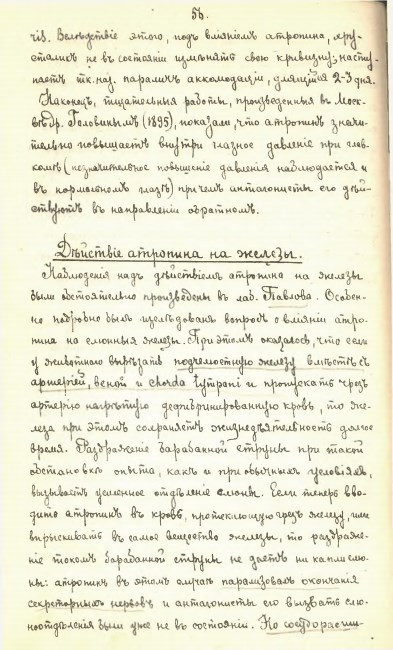 56.
ris. Вслѣдствіе этого, подъ вліяніемъ атропина, хру-
сталикъ не въ состояніи измѣнять свою кривизну; насту-
паетъ тк. наз. параличъ аккомодаціи, длящійся 2-3 дня.
Наконецъ, тщательныя работы, произведенныя въ Моск-
вѣ др. Головинымъ (1895), показали, что атропинъ значи-
тельно повышаетъ внутри глазное давленіе при глав-
комѣ (незначительное повышеніе давленія наблюдается и
въ нормальномъ глазѣ) причемъ антагонисты его дѣй-
ствуютъ въ направленіи обратномъ.
Дѣйствіе атропина на железы.
Наблюденія надъ дѣйствіемъ атропина на железы
были обстоятельно произведены въ лаб. Павлова. Особен-
но подробно былъ изслѣдованъ вопросъ о вліяніи атро-
пина на слюнныя железы. При этомъ оказалось, что если
у животнаго вырѣзать подчелюстную железу вмѣстѣ съ
артеріей, веной и chorda tympani и пропускать чрезъ
артерію нагрѣтую дефибринированную кровь, то же-
леза при этомъ сохраняетъ жизнедѣятельность долгое
время. Раздраженіе барабанной струны при такой
обстановкѣ опыта, какъ и при обычныхъ условіяхъ,
вызываетъ усиленное отдѣленіе слюны. Если теперь вво-
дить атропинъ въ кровь, протекающую чрезъ железу, или
впрыскивать въ самое вещество железы, то раздраже-
ніе токомъ барабанной струны не даетъ ни капли слю-
ны: атропинъ въ этомъ случаѣ парализовалъ окончанія
секреторныхъ нервовъ и антагонисты его вызвать слю-
ноотдѣленія были уже не въ состояніи. Но сосудорасши-